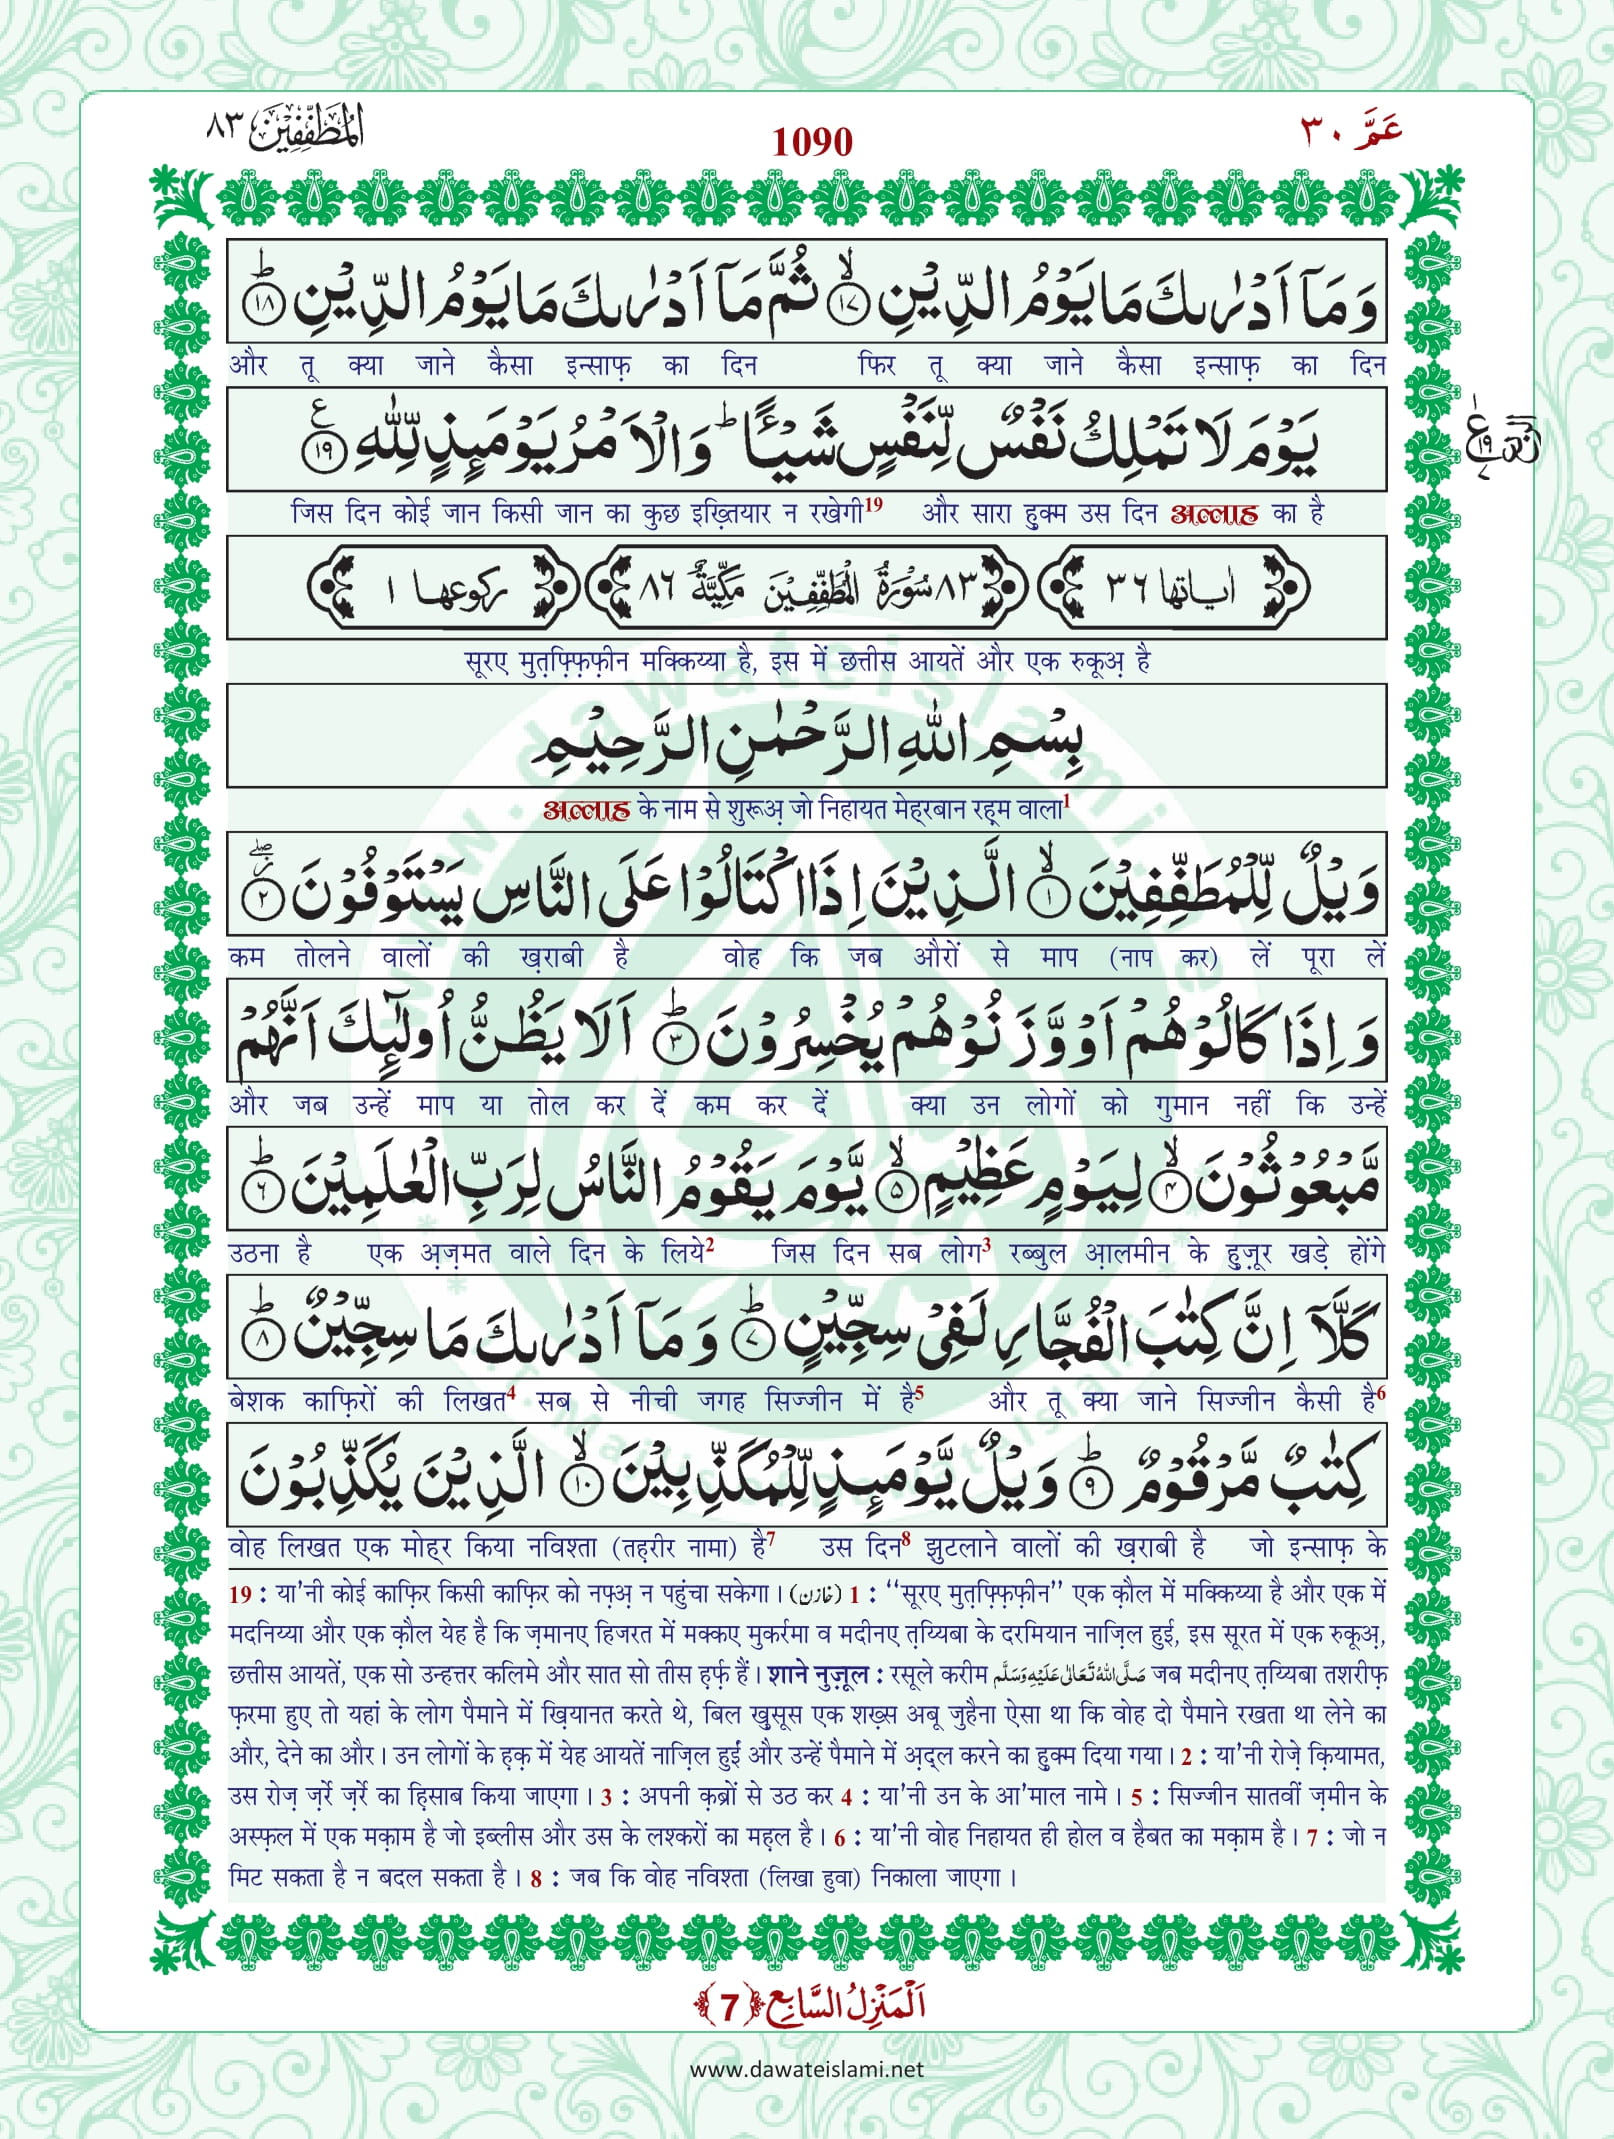 عَمَّ ٣٠
1090
الْمُطَفِّفِيْنَ ٨٣
وَمَاۤ اَدْرٰىكَ مَا یَوْمُ الدِّیْنِۙ﴿۱۷﴾ ثُمَّ مَاۤ اَدْرٰىكَ مَا یَوْمُ الدِّیْنِؕ﴿۱۸﴾
और तू क्या जाने कैसा इन्साफ़ का दिन फिर तू क्या जाने कैसा इन्साफ़ का दिन
یَوْمَ لَا تَمْلِكُ نَفْسٌ لِّنَفْسٍ شَیْــٴًـاؕ وَ الْاَمْرُ یَوْمَىٕذٍ لِّلّٰهِ﴿۱۹﴾ع
जिस दिन कोई जान किसी जान का कुछ इख़्तियार न रखेगी19 और सारा हुक्म उस दिन अल्लाह का है
اٰیاتها ٣٦ ٨٣ سُوْرَةُ الْمُطَفِّفِیْنَ مَكِّیَّةٌ ٨٦ ركوعها ١
सूरए मुत़फ़्फ़िफ़ीन मक्किय्या है, इस में छत्तीस आयतें और एक रुकूअ़ है
بِسْمِ اللّٰهِ الرَّحْمٰنِ الرَّحِیْمِ
अल्लाह के नाम से शुरूअ़ जो निहायत मेह्‌रबान रह़्म वाला1
وَیْلٌ لِّلْمُطَفِّفِیْنَۙ﴿۱﴾ الَّذِیْنَ اِذَا اكْتَالُوْا عَلَى النَّاسِ یَسْتَوْفُوْنَ٘ۖ﴿۲﴾
कम तोलने वालों की ख़राबी है वोह कि जब औरों से माप (नाप कर) लें पूरा लें
وَ اِذَا كَالُوْهُمْ اَوْ وَّزَنُوْهُمْ یُخْسِرُوْنَؕ﴿۳﴾ اَلَا یَظُنُّ اُولٰٓىٕكَ اَنَّهُمْ
और जब उन्हें माप या तोल कर दें कम कर दें क्या उन लोगों को गुमान नहीं कि उन्हें
مَّبْعُوْثُوْنَۙ﴿۴﴾ لِیَوْمٍ عَظِیْمٍۙ﴿۵﴾ یَّوْمَ یَقُوْمُ النَّاسُ لِرَبِّ الْعٰلَمِیْنَؕ﴿۶﴾
उठना है एक अ़ज़मत वाले दिन के लिये2 जिस दिन सब लोग3 रब्बुल आ़लमीन के हुज़ूर खड़े होंगे
كَلَّاۤ اِنَّ كِتٰبَ الْفُجَّارِ لَفِیْ سِجِّیْنٍؕ﴿۷﴾ وَ مَاۤ اَدْرٰىكَ مَا سِجِّیْنٌؕ﴿۸﴾
बेशक काफ़िरों की लिखत4 सब से नीची जगह सिज्जीन में है5 और तू क्या जाने सिज्जीन कैसी है6
كِتٰبٌ مَّرْقُوْمٌؕ﴿۹﴾ وَیْلٌ یَّوْمَىٕذٍ لِّلْمُكَذِّبِیْنَۙ﴿۱۰﴾ الَّذِیْنَ یُكَذِّبُوْنَ
वोह लिखत एक मोह्‌र किया नविश्ता (तह़रीर नामा) है7 उस दिन8 झुटलाने वालों की ख़राबी है जो इन्साफ़ के
19 : या'नी कोई काफ़िर किसी काफ़िर को नफ़्अ़ न पहुंचा सकेगा। (خازن) 1 : ‘‘सूरए मुत़फ़्फ़िफ़ीन’’ एक क़ौल में मक्किय्या है और एक में
मदनिय्या और एक क़ौल येह है कि ज़मानए हिजरत में मक्कए मुकर्रमा व मदीनए त़य्यिबा के दरमियान नाज़िल हुई, इस सूरत में एक रुकूअ़,
छत्तीस आयतें, एक सो उन्हत्तर कलिमे और सात सो तीस ह़र्फ़ हैं। शाने नुज़ूल : रसूले करीम صَلَّى اللهُ تَعَالٰى عَلَيْهِ وَسَلَّم जब मदीनए त़य्यिबा तशरीफ़
फ़रमा हुए तो यहां के लोग पैमाने में ख़ियानत करते थे, बिल ख़ुसूस एक शख़्स अबू जुहैना ऐसा था कि वोह दो पैमाने रखता था लेने का
और, देने का और। उन लोगों के ह़क़ में येह आयतें नाज़िल हुईं और उन्हें पैमाने में अ़द्‌ल करने का हुक्म दिया गया। 2 : या'नी रोज़े क़ियामत,
उस रोज़ ज़र्रे ज़र्रे का ह़िसाब किया जाएगा। 3 : अपनी क़ब्रों से उठ कर 4 : या'नी उन के आ'माल नामे। 5 : सिज्जीन सातवीं ज़मीन के
अस्फ़ल में एक मक़ाम है जो इब्लीस और उस के लश्करों का मह़ल है। 6 : या'नी वोह निहायत ही होल व हैबत का मक़ाम है। 7 : जो न
मिट सकता है न बदल सकता है। 8 : जब कि वोह नविश्ता (लिखा हुवा) निकाला जाएगा।
اَلْمَنْزِلُ السَّابِع ﴿7﴾
www.dawateislami.net